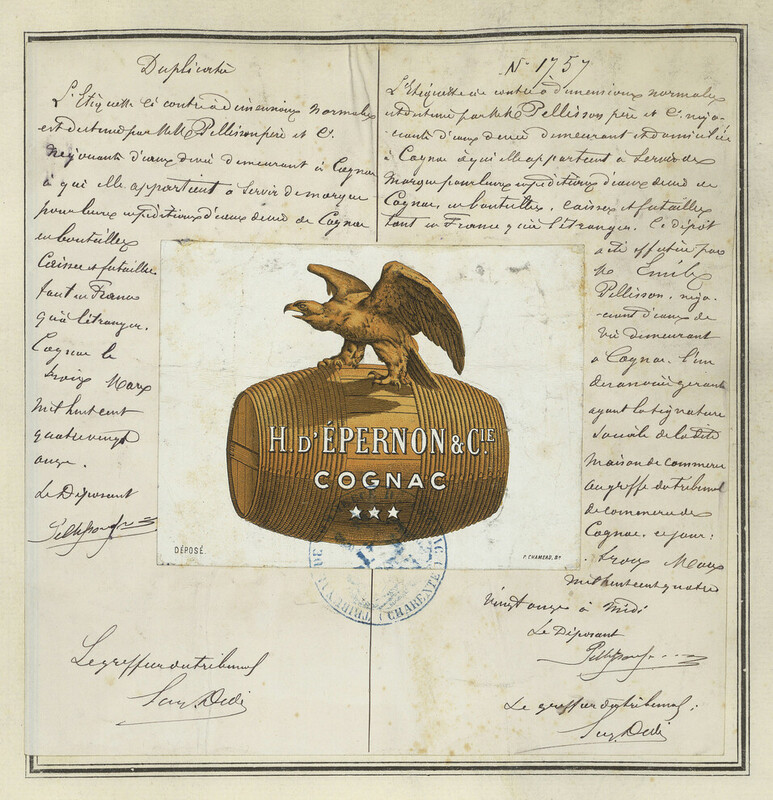 Duplicata
L'Etiquette ci contre à dimensions normales
est destiné par MM Pellisson père et Cⁱᵉ.
négociants d'eaux de vie demeurant à Cognac
à qui elle appartient à Servir de marque
pour leurs expéditions d'eaux de vie de Cognac
en bouteilles
Caisses et futailles
tant en France
qu'à l'étranger.
Cognac le
trois Mars
mil huit cent
quatre vingt
onze.
Le Déposant
Le greffier du tribunal
N° 1757
L'Etiquette ci contre à dimensions normales
est destiné par MM Pellisson père et Cⁱᵉ négo-
ciants d'eaux de vie demeurant et domiciliés
à Cognac à qui elle appartient à Servir de
Marque pour leurs expéditions d'eaux de vie de
Cognac, en bouteilles, caisses et futailles
tant en France qu'à l'étranger. Ce dépôt
a été effectué par
Mr Emile
Pellisson, négo-
ciant d'eaux de
vie demeurant
à Cognac, l'un
des associés gérants
ayant la signature
sociale de la dite
Maison de commerce
au greffe du tribunal
de commerce de
Cognac, ce jour:
trois Mars
mil huit cent quatre
vingt onze à Midi
Le Déposant
Le greffier du tribunal:
H. D'ÉPERNON & Cᴵᴱ.
COGNAC
DÉPOSÉ.
CHARENTE